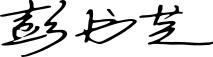 彭书芝